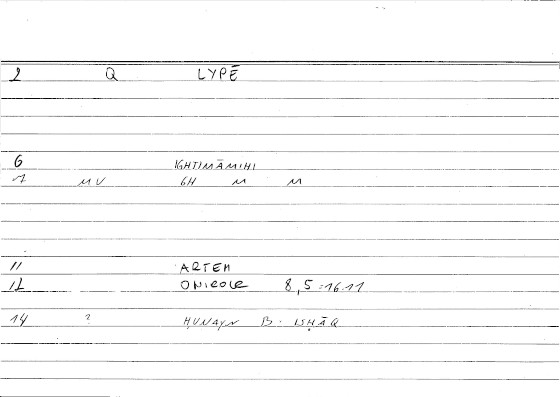 2 Q LYPĒ
6 IGHTIMĀMIHI
7 MV GH M M
11 ARTEM
12 ONIROCR 8,5 = 16.11
14 ? ḤUNAYN B. ISḤĀQ